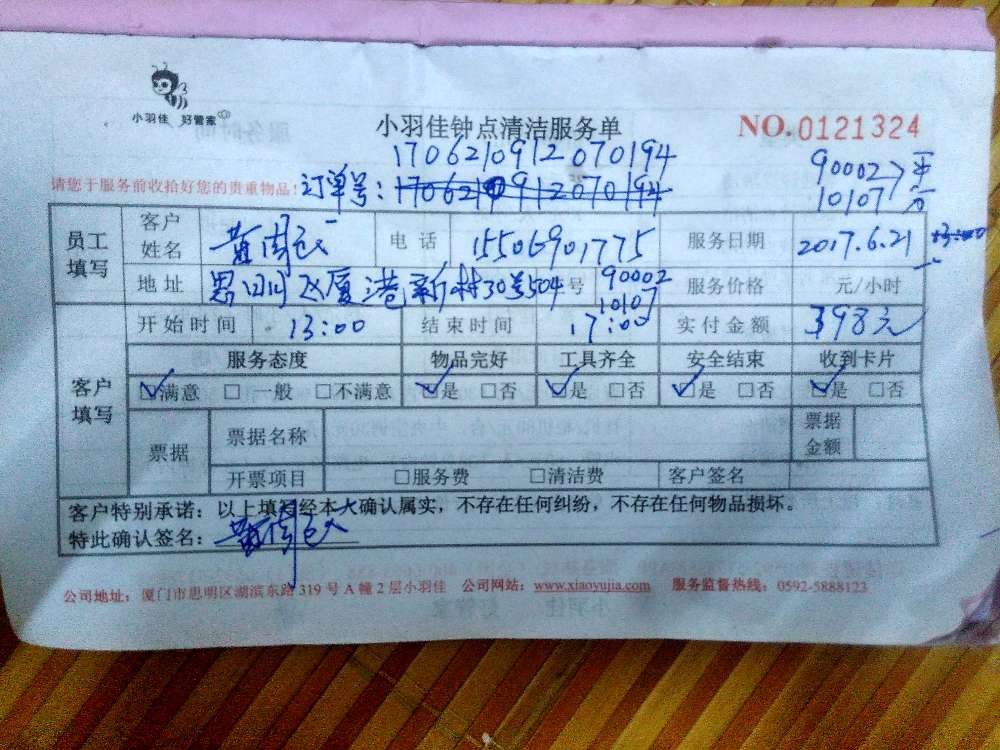 小羽佳 好管家
小羽佳钟点清洁服务单
NO.0121324
1706210912070194
请您于服务前收拾好您的贵重物品!
订单号:170621 0912070194
90002
10107
员工填写
客户姓名
电话 15506901775
服务日期 2017.6.21 13:00
地址 思明区厦港新村30号504 号 90002
10107
服务价格 元/小时
客户填写
开始时间 13:00 结束时间 17:00 实付金额 398元
服务态度 物品完好 工具齐全 安全结束 收到卡片
☑满意 □一般 □不满意 ☑是 □否 ☑是 □否 ☑是 □否 ☑是 □否
票据
票据名称
票据金额
开票项目 □服务费 □清洁费 客户签名
客户特别承诺:以上填写经本人确认属实,不存在任何纠纷,不存在任何物品损坏。
特此确认签名:
公司地址:厦门市思明区湖滨东路319号A幢2层小羽佳 公司网站:www.xiaoyujia.com 服务监督热线:0592-5888123